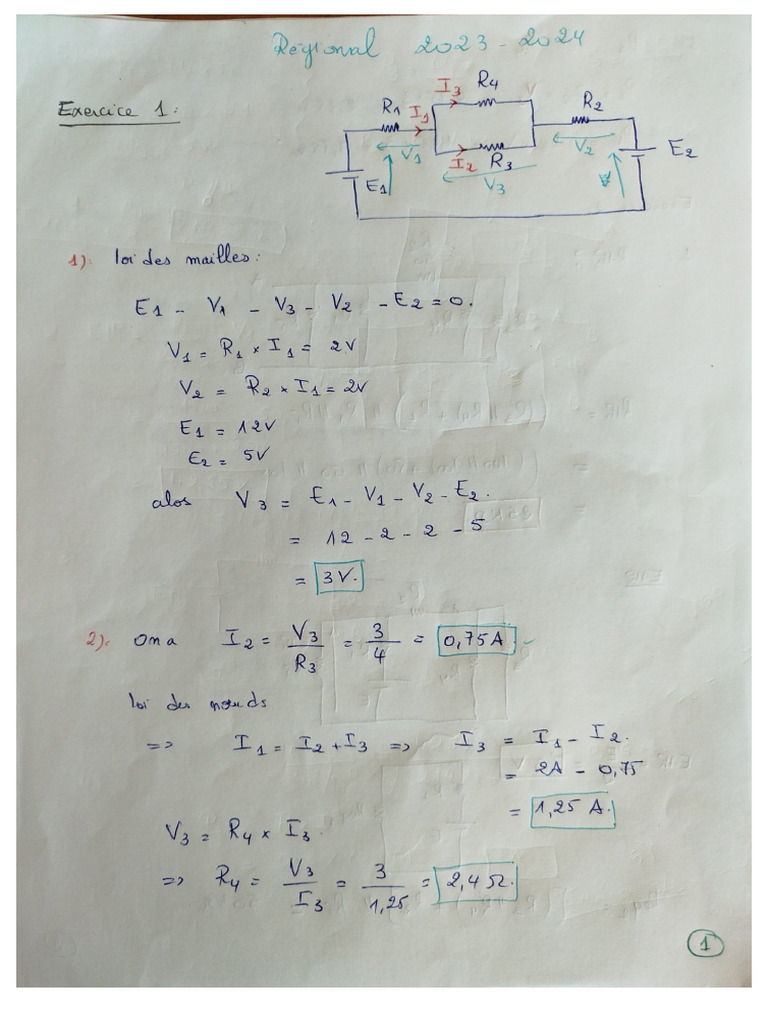 Régional 2023-2024
Exercice 1:
R4
I3
R1
I1
R2
V1
V2
I2
R3
E2
E1
V3
1). loi des mailles:
E1 - V1 - V3 - V2 - E2 = 0.
V1 = R1 × I1 = 2V
V2 = R2 × I1 = 2V
E1 = 12V
E2 = 5V
alos V3 = E1 - V1 - V2 - E2.
= 12 - 2 - 2 - 5
= 3V.
2). On a I2 = V3/R3 = 3/4 = 0,75A
loi des nœuds
=> I1 = I2 + I3 => I3 = I1 - I2.
= 2A - 0,75
= 1,25 A.
V3 = R4 × I3
=> R4 = V3/I3 = 3/1,25 = 2,4 Ω.
1